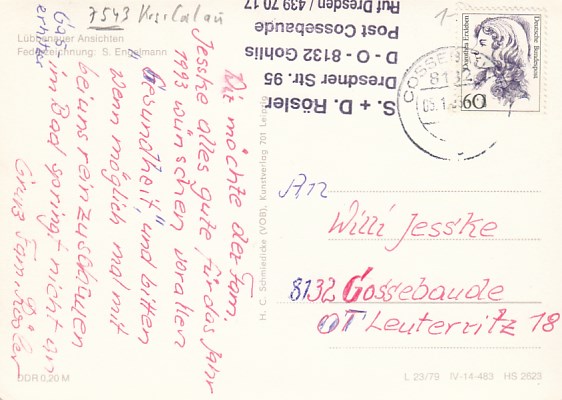 7543
Lübbenauer Ansichten
Federzeichnung: S. Engelmann
Die möchte der Fam.
Jesske alles gute für das Jahr
1993 wünschen vor allen
"Gesundheit" und bitten
wenn möglich mal mit
bei uns reinzuschauen
im Bad springt nicht an
Gruß Fam. Rösler
DDR 0,20 M
H. C. Schmiedicke (VOB), Kunstverlag 701 Leipzig
S. + D. Rösler
Dresdner Str. 95
D - O - 8132 Gohlis
Post Cossebaude
Ruf Dresden / 439 70 17
COSSEB
8132
Dorothea Erxleben
Deutsche Bundespost
60
An
Willi Jesske
8132 Gossebaude
OT Leuterritz 18
L 23/79 IV-14-483 HS 2623